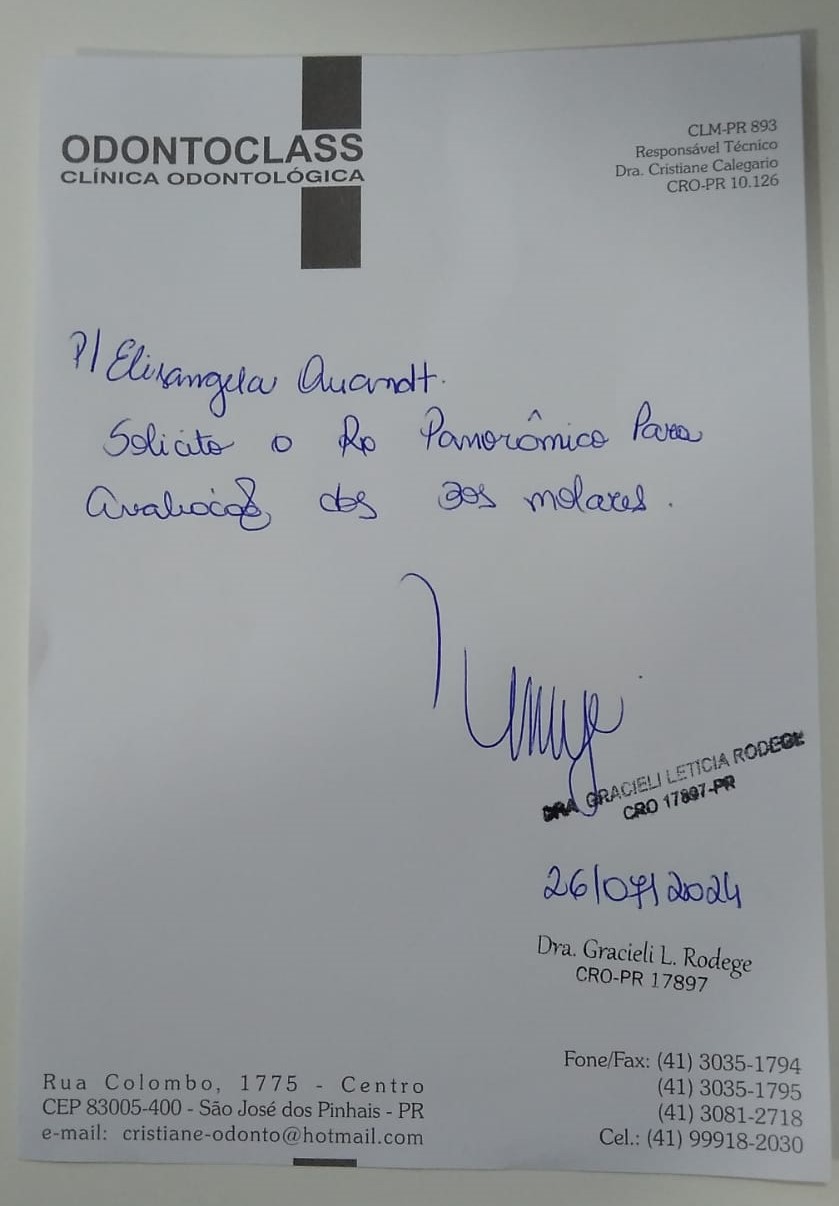 ODONTOCLASS
CLÍNICA ODONTOLÓGICA
CLM-PR 893
Responsável Técnico
Dra. Cristiane Calegario
CRO-PR 10.126
P/ Elisangela Quandt.
Solicito o Rx Panorâmico Para
Avaliação dos 3os molares.
DRA GRACIELI LETICIA RODEGE
CRO 17897-PR
26/07/2024
Dra. Gracieli L. Rodege
CRO-PR 17897
Rua Colombo, 1775 - Centro
CEP 83005-400 - São José dos Pinhais - PR
e-mail: cristiane-odonto@hotmail.com
Fone/Fax: (41) 3035-1794
(41) 3035-1795
(41) 3081-2718
Cel.: (41) 99918-2030